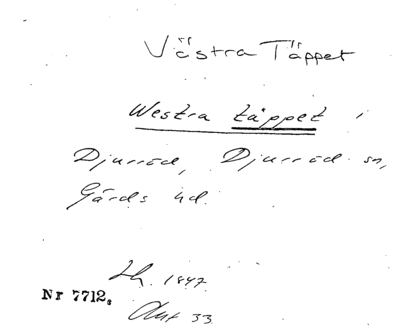 Västra Täppet
Westra täppet i
Djurröd, Djurröd sn,
Gärds hd.
Lh. 1847
Nr 7712.
Akt 33